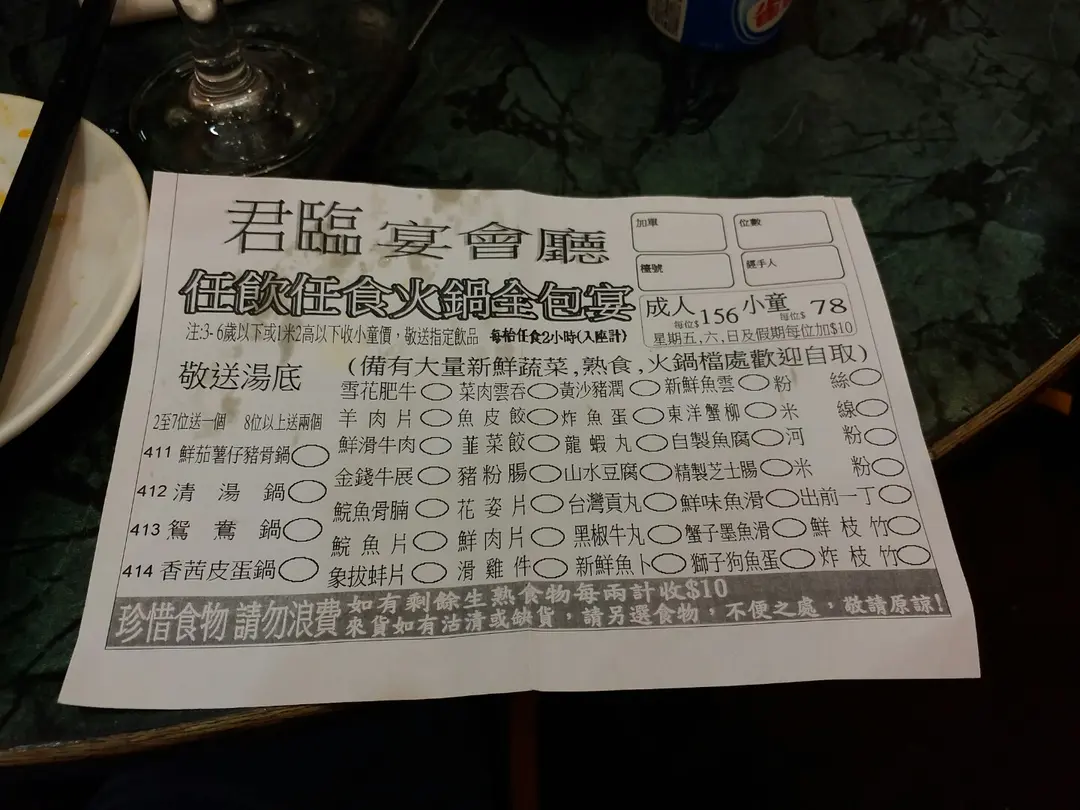 君臨宴會廳
加單
位數
檯號
經手人
任飲任食火鍋全包宴
成人 每位$156 小童 每位$78
星期五,六,日及假期每位加$10
注:3-6歲以下或1米2高以下收小童價，敬送指定飲品 每枱任食2小時(入座計)
(備有大量新鮮蔬菜,熟食,火鍋檔處歡迎自取)
敬送湯底
2至7位送一個 8位以上送兩個
411 鮮茄薯仔豬骨鍋
412 清湯鍋
413 鴛鴦鍋
414 香茜皮蛋鍋
雪花肥牛 菜肉雲吞 黃沙豬潤 新鮮魚雲 粉絲
羊肉片 魚皮餃 炸魚蛋 東洋蟹柳 米線
鮮滑牛肉 韮菜餃 龍蝦丸 自製魚腐 河粉
金錢牛展 豬粉腸 山水豆腐 精製芝士腸 米粉
鯇魚骨腩 花姿片 台灣貢丸 鮮味魚滑 出前一丁
鯇魚片 鮮肉片 黑椒牛丸 蟹子墨魚滑 鮮枝竹
象拔蚌片 滑雞件 新鮮魚卜 獅子狗魚蛋 炸枝竹
珍惜食物 請勿浪費
如有剩餘生熟食物每兩計收$10
來貨如有沽清或缺貨，請另選食物，不便之處，敬請原諒!